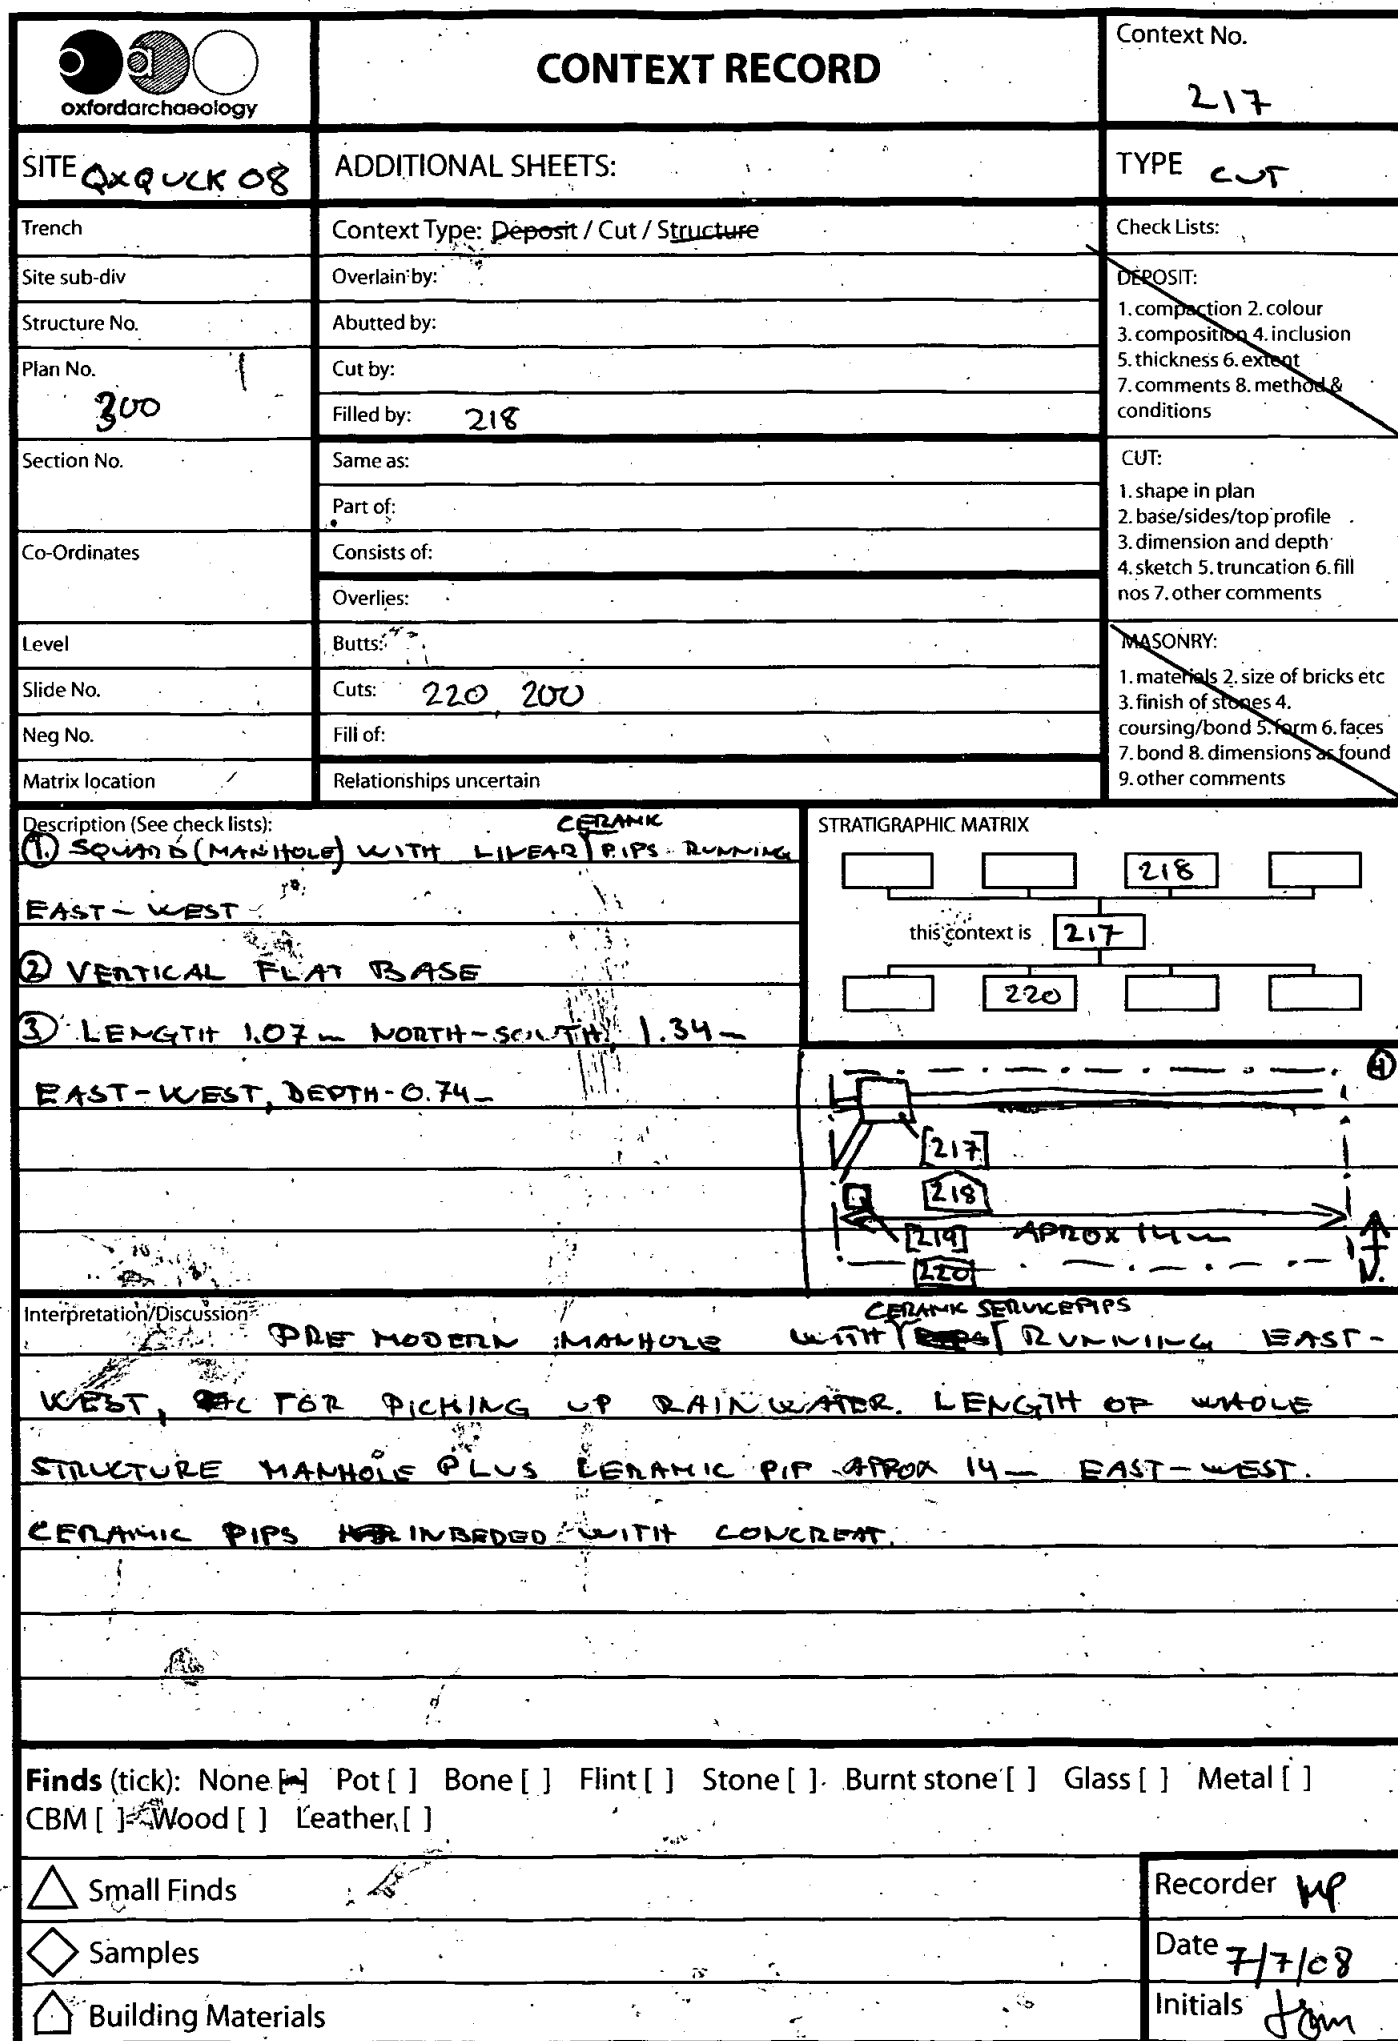 oxfordarchaeology
CONTEXT RECORD
Context No.
217
SITE QXQUCK 08
ADDITIONAL SHEETS:
TYPE CUT
Trench
Context Type: Deposit / Cut / Structure
Check Lists:
Site sub-div
Overlain by:
Structure No.
Abutted by:
Plan No.
300
Cut by:
Filled by: 218
Section No.
Same as:
Part of:
Co-Ordinates
Consists of:
Overlies:
Level
Butts:
Slide No.
Cuts: 220, 200
Neg No.
Fill of:
Matrix location
Relationships uncertain
DEPOSIT:
1. compaction 2. colour
3. composition 4. inclusion
5. thickness 6. extent
7. comments 8. method &
conditions
CUT:
1. shape in plan
2. base/sides/top profile
3. dimension and depth
4. sketch 5. truncation 6. fill
nos 7. other comments
MASONRY:
1. materials 2. size of bricks etc
3. finish of stones 4.
coursing/bond 5. form 6. faces
7. bond 8. dimensions as found
9. other comments
Description (See check lists):
CERAMIC
① SQUARE (MANHOLE) WITH LINEAR PIPS RUNNING
EAST - WEST
② VERTICAL FLAT BASE
③ LENGTH 1.07m NORTH-SOUTH, 1.34m
EAST-WEST, DEPTH-0.74m
STRATIGRAPHIC MATRIX
218
this context is 217
220
④
[217]
218
[219] APROX 14m
220
N.
Interpretation/Discussion
CERAMIC SERVICE PIPS
PRE MODERN MANHOLE WITH RUNNING EAST-
WEST, FOR PICHING UP RAINWATER. LENGTH OF WHOLE
STRUCTURE MANHOLE PLUS CERAMIC PIP APROX 14m EAST-WEST.
CERAMIC PIPS INBEDED WITH CONCREAT.
Finds (tick): None [ ] Pot [ ] Bone [ ] Flint [ ] Stone [ ] Burnt stone [ ] Glass [ ] Metal [ ]
CBM [ ] Wood [ ] Leather [ ]
Small Finds
Samples
Building Materials
Recorder MP
Date 7/7/08
Initials